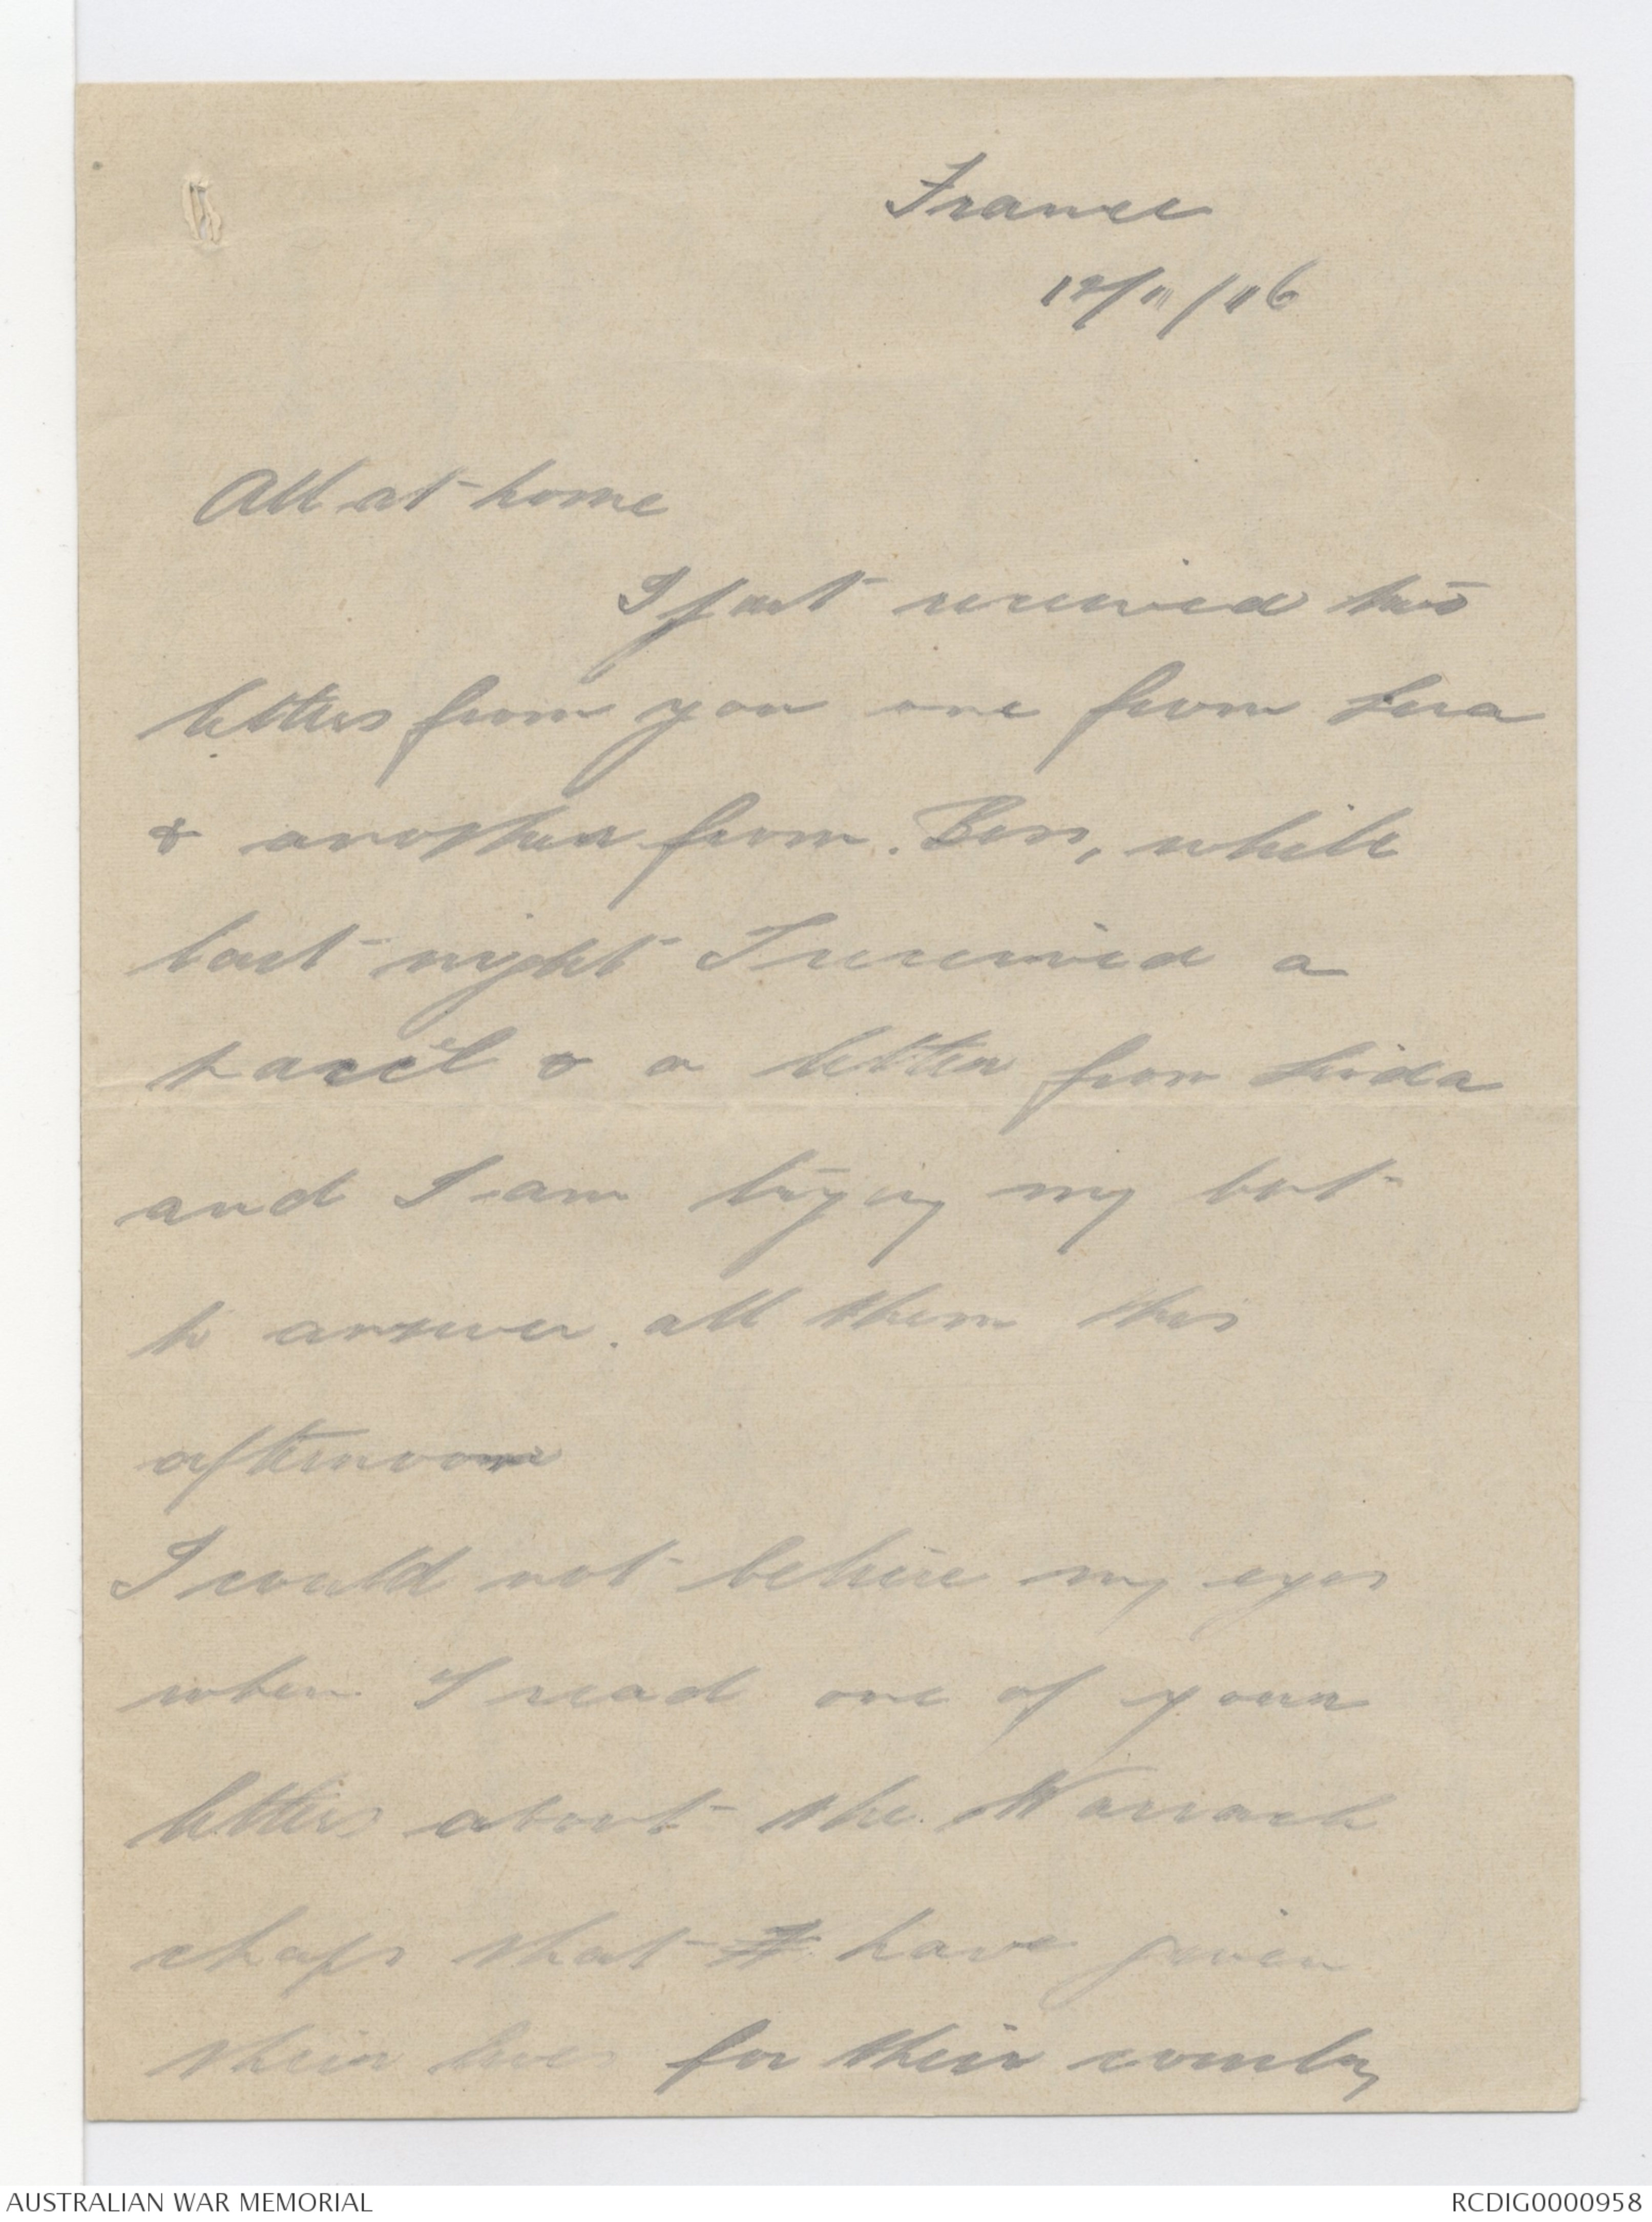 France
12/11/16
All at home
I just received two
letters from you one from
& another from. Bess, while
last night I received a
parcel & a letter from Linda
and I am trying my best
to answer. all them this
afternoon
I could not believe my eyes
when I read one of your
letters about the
chaps that have given
their lives for their country
AUSTRALIAN WAR MEMORIAL
RCDIG0000958